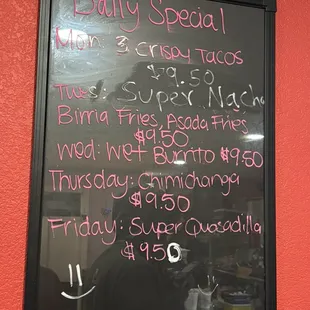 Daily Special
Mon 3 Crispy Tacos
$9.50
Tues: Super Nacho
Birria Fries, Asada Fries
$9.50
Wed: Wet Burrito $9.50
Thursday: Chimichanga
$9.50
Friday: Super Quasadilla
$9.50